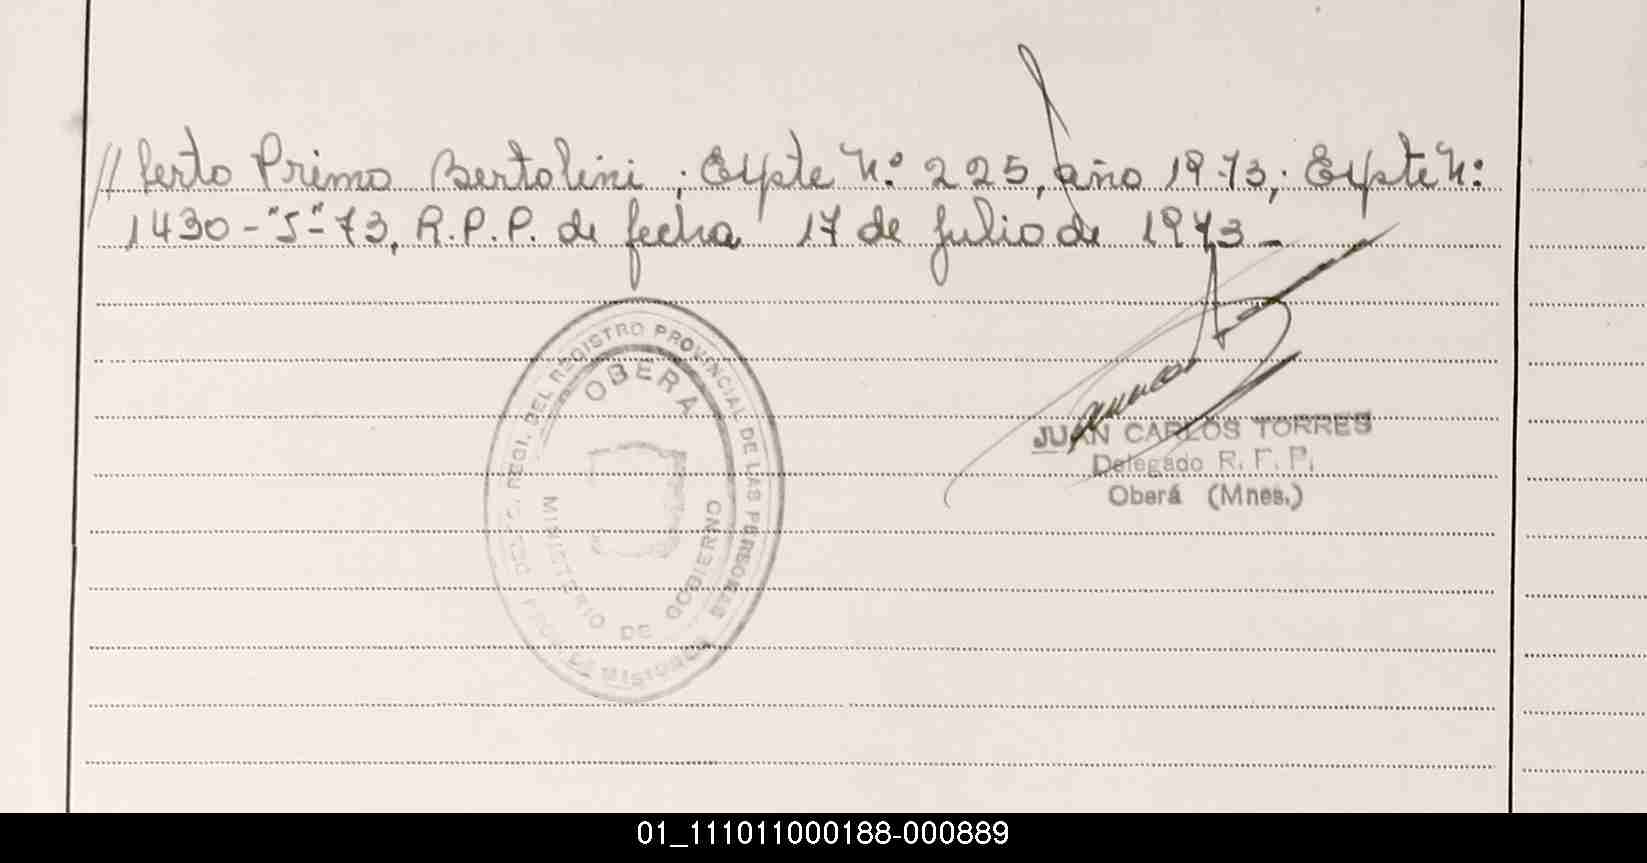 //berto Primo Bertolini; Expte Nº 225, año 1973; Expte Nº:
1430-"S"-73, R.P.P. de fecha 17 de Julio de 1973-
DEL REGISTRO PROVINCIAL DE LAS PERSONAS
OBERA
MINISTERIO DE GOBIERNO
PROV. DE MISIONES
JUAN CARLOS TORRES
Delegado R. P. P.
Oberá (Mnes.)
01_111011000188-000889